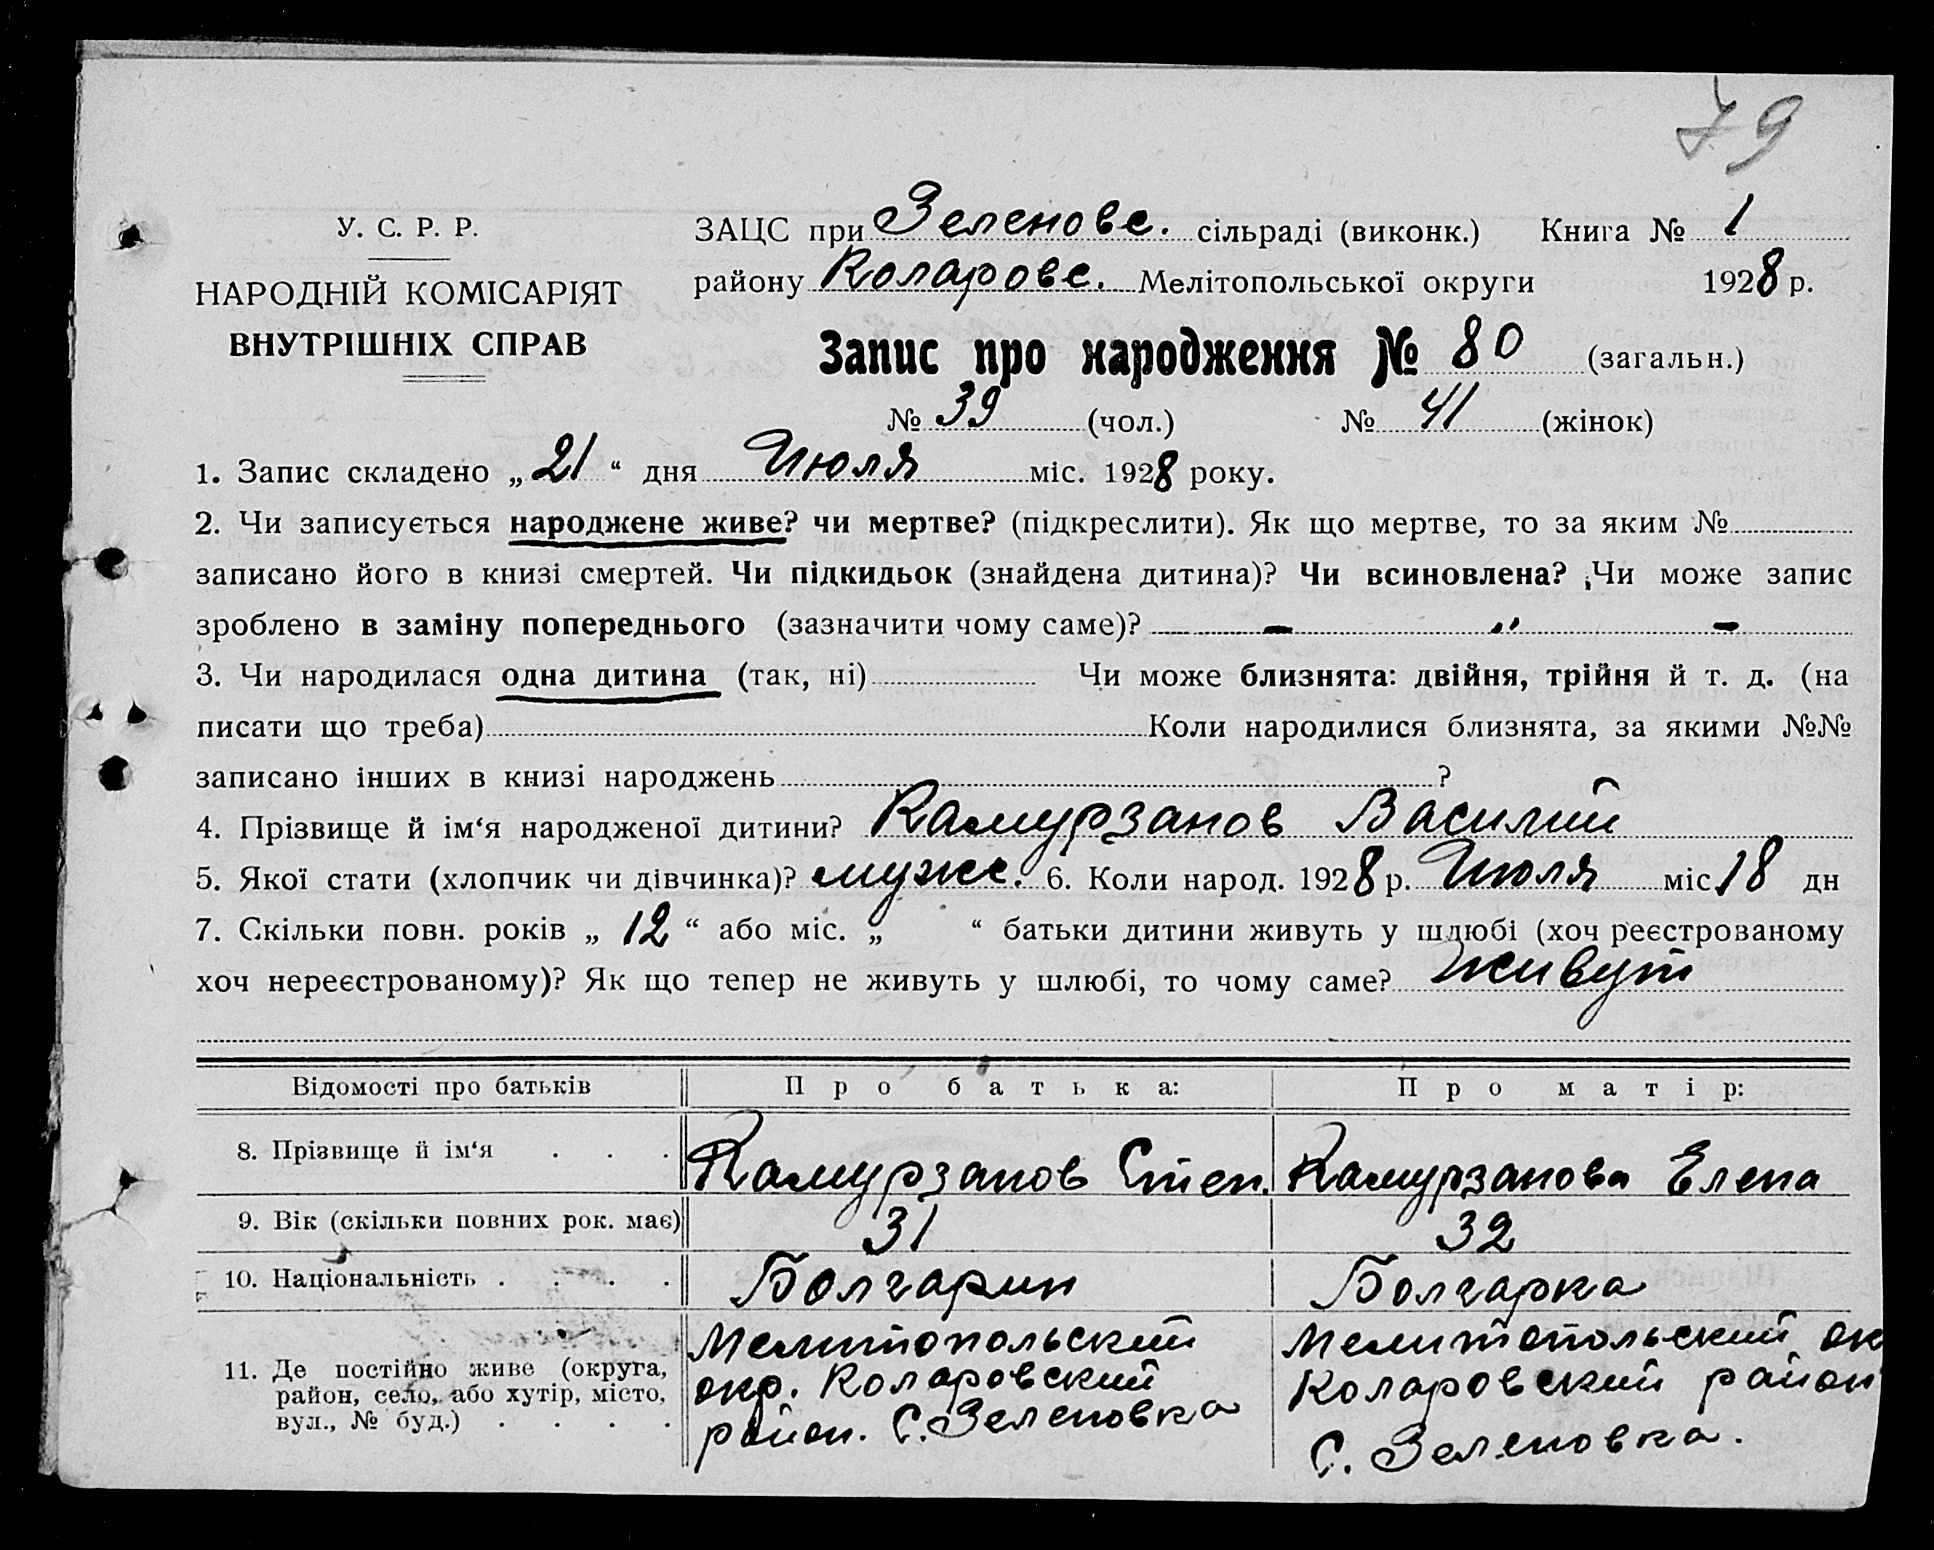 79
У. С. Р. Р.
НАРОДНІЙ КОМІСАРІЯТ
ВНУТРІШНІХ СПРАВ
ЗАЦС при Зеленове. сільраді (виконк.) Книга № 1
району Коларове. Мелітопольської округи 1928 р.
Запис про народження № 80 (загальн.)
№ 39 (чол.) № 41 (жінок)
1. Запис складено „ 21 “ дня Июля міс. 1928 року.
2. Чи записується народжене живе? чи мертве? (підкреслити). Як що мертве, то за яким №
записано його в книзі смертей. Чи підкидьок (знайдена дитина)? Чи всиновлена? Чи може запис
зроблено в заміну попереднього (зазначити чому саме)? — „ —
3. Чи народилася одна дитина (так, ні) Чи може близнята: двійня, трійня й т. д. (на
писати що треба) Коли народилися близнята, за якими №№
записано інших в книзі народжень ?
4. Прізвище й ім‘я народженої дитини? Камурзанов Василий
5. Якої стати (хлопчик чи дівчинка)? мужс. 6. Коли народ. 1928 р. Июля міс 18 дн
7. Скільки повн. років „ 12 “ або міс. „ “ батьки дитини живуть у шлюбі (хоч реєстрованому
хоч нереєстрованому)? Як що тепер не живуть у шлюбі, то чому саме? живут
Відомості про батьків Про батька: Про матір:
8. Прізвище й ім‘я . . . Камурзанов Степ. Камурзанова Елена
9. Вік (скільки повних рок. має) 31 32
10. Національність . . . . Болгарин Болгарка
11. Де постійно живе (округа,
район, село, або хутір, місто,
вул., № буд.) . . . .
Мелитопольский
окр. Коларовский
район. С. Зеленовка
Мелитопольский ок
Коларовский район
С. Зеленовка.